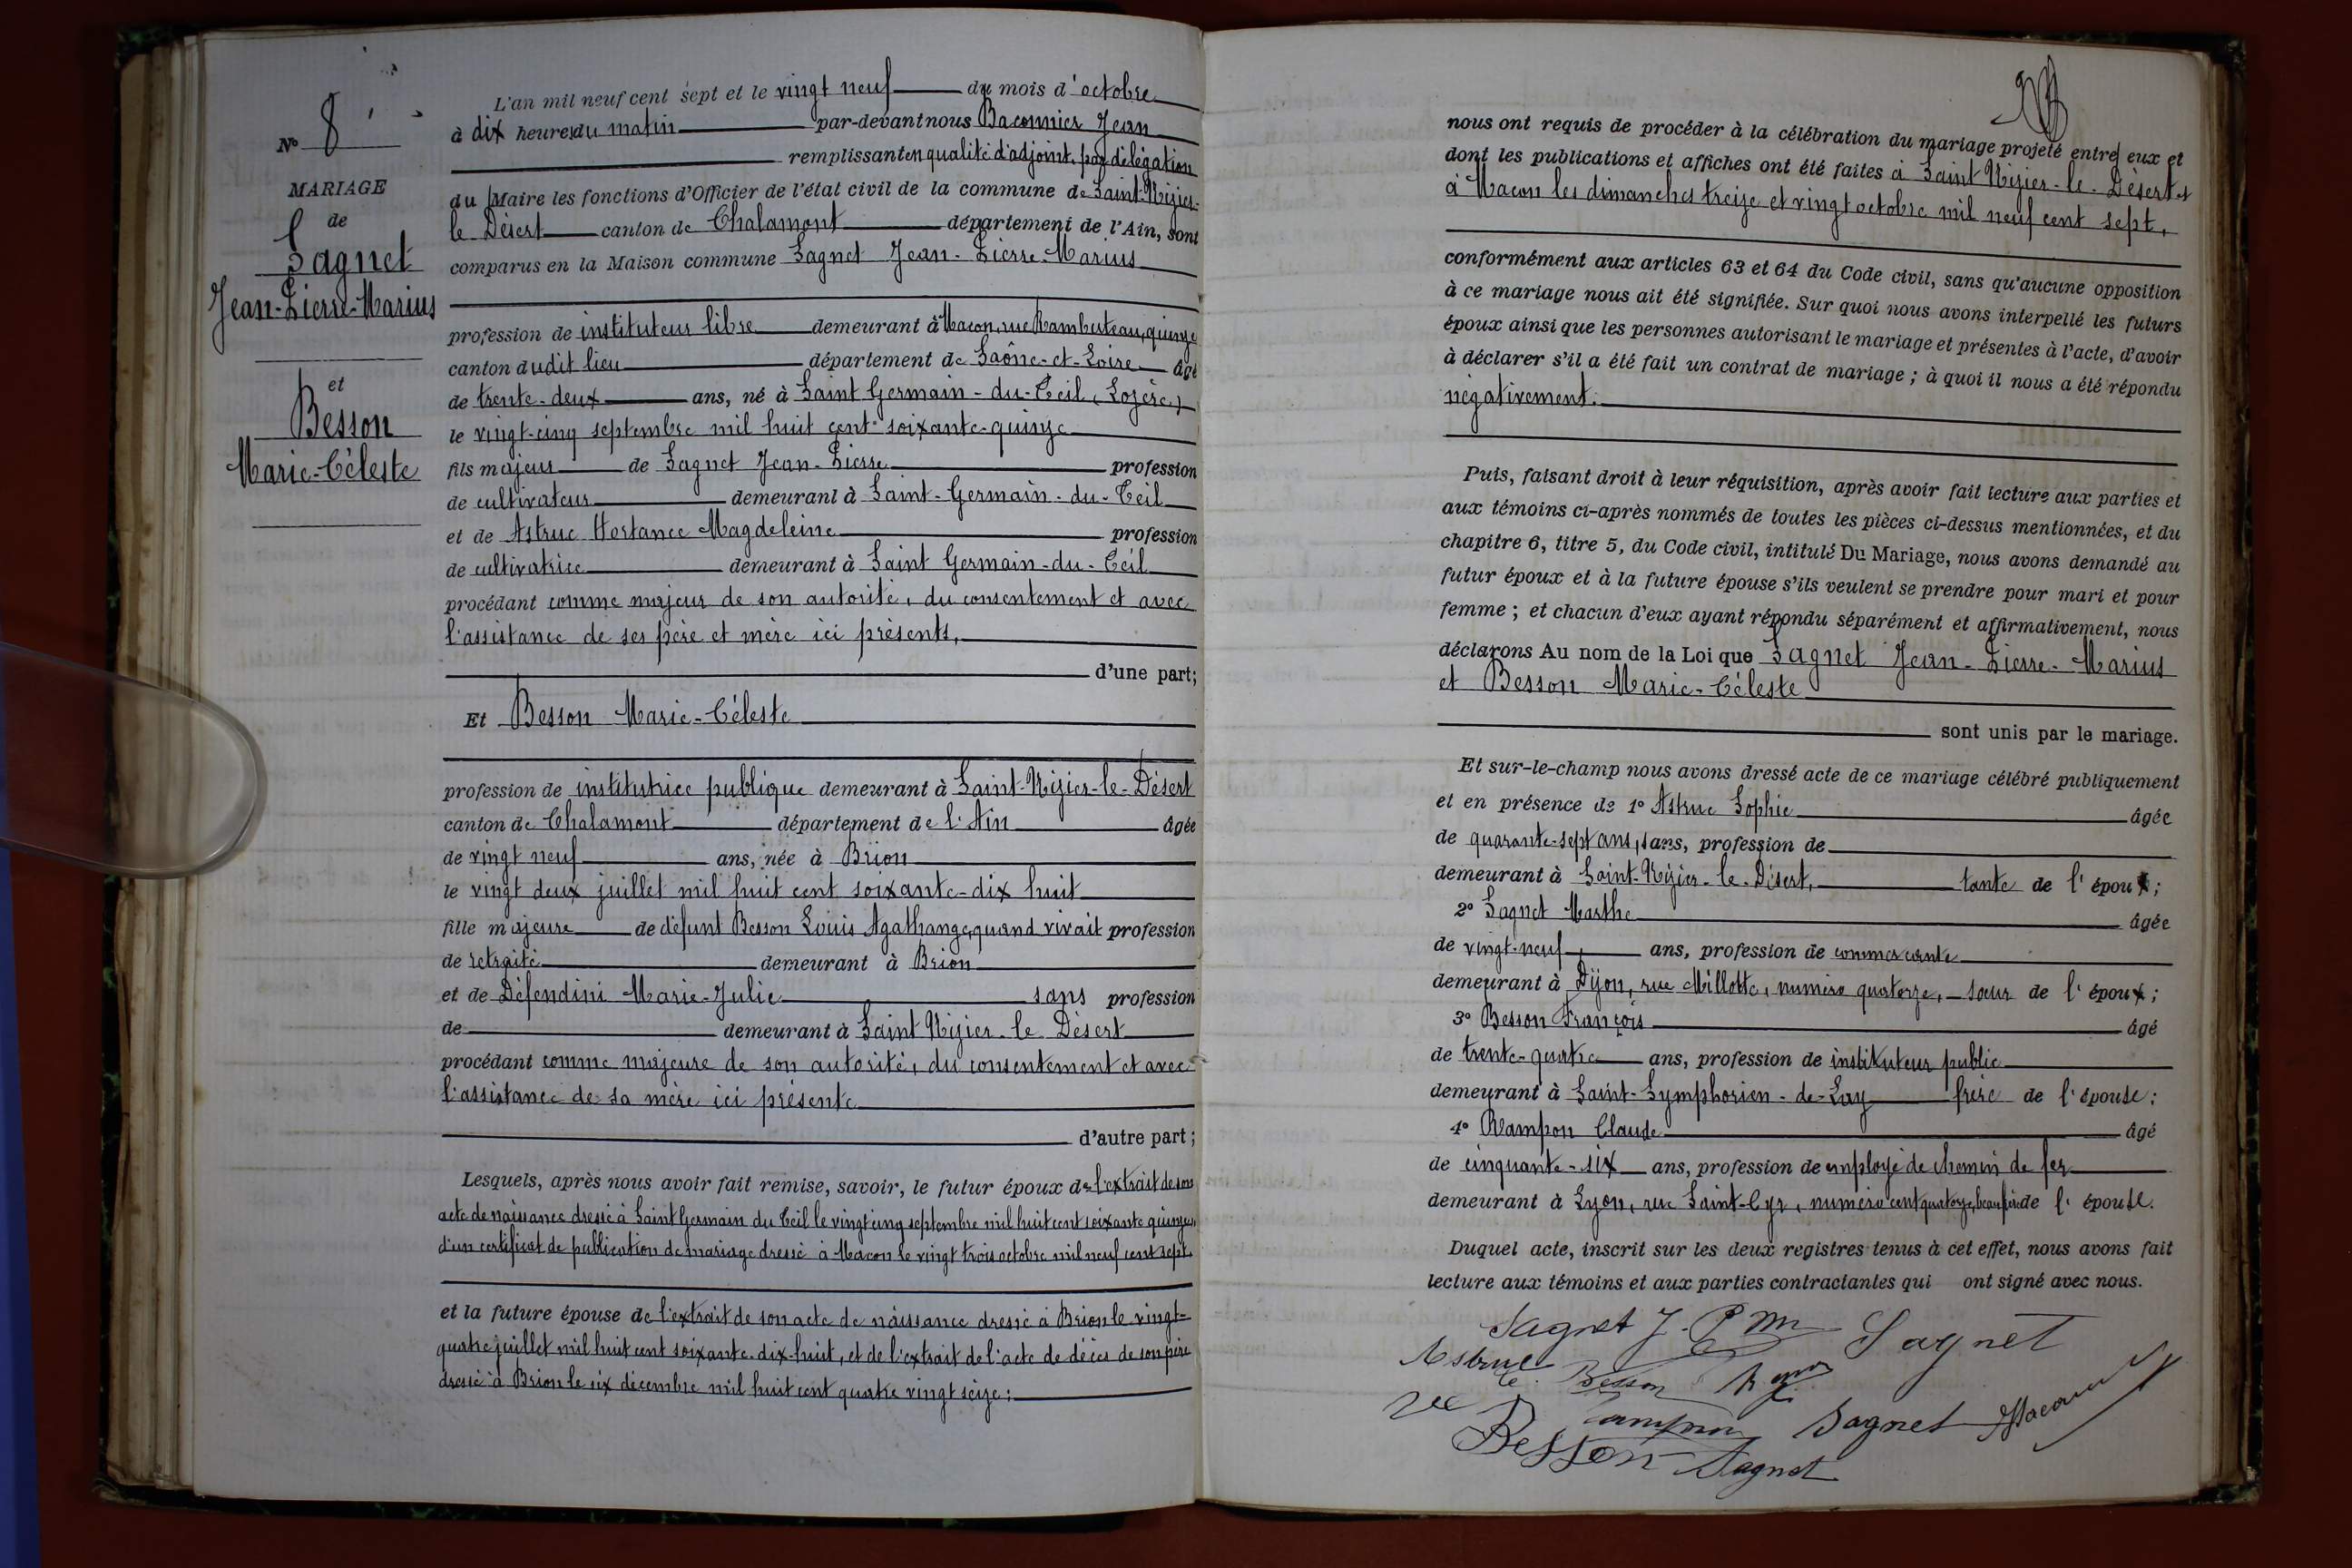 N° 8
MARIAGE
de
Sagnet
Jean-Pierre-Marius
et
Besson
Marie-Céleste
L'an mil neuf cent sept et le vingt neuf du mois d'octobre
à dix heures du matin par-devant nous Baconnier Jean
remplissant en qualité d'adjoint, par délégation
du Maire les fonctions d'Officier de l'état civil de la commune de Saint-Nizier-
le Désert canton de Chalamont département de l'Ain, sont
comparus en la Maison commune Sagnet Jean-Pierre-Marius
profession de instituteur libre demeurant à Macon, rue Rambuteau, quinze
canton dudit lieu département de Saône-et-Loire âgé
de trente-deux ans, né à Saint Germain-du-Teil (Lozère)
le vingt-cinq septembre mil huit cent soixante-quinze
fils majeur de Sagnet Jean-Pierre profession
de cultivateur demeurant à Saint-Germain-du-Teil
et de Astruc Hortance Magdeleine profession
de cultivatrice demeurant à Saint Germain-du-Teil
procédant comme majeur de son autorité, du consentement et avec
l'assistance de ses père et mère ici présents,
d'une part;
Et Besson Marie-Céleste
profession de institutrice publique demeurant à Saint-Nizier-le-Désert
canton de Chalamont département de l'Ain âgée
de vingt neuf ans, née à Brion
le vingt deux juillet mil huit cent soixante-dix huit
fille majeure de défunt Besson Louis Agathange, quand vivait profession
de retraité demeurant à Brion
et de Défendini Marie-Julie sans profession
de demeurant à Saint Nizier-le Désert
procédant comme majeure de son autorité, du consentement et avec
l'assistance de sa mère ici présente
d'autre part;
Lesquels, après nous avoir fait remise, savoir, le futur époux de l'extrait de son
acte de naissance dressé à Saint Germain du Teil le vingt cinq septembre mil huit cent soixante quinze,
d'un certificat de publication de mariage dressé à Macon le vingt trois octobre mil neuf cent sept.
et la future épouse de l'extrait de son acte de naissance dressé à Brion le vingt-
quatre juillet mil huit cent soixante-dix-huit, et de l'extrait de l'acte de décès de son père
dressé à Brion le six décembre mil huit cent quatre vingt seize;
nous ont requis de procéder à la célébration du mariage projeté entre eux et
dont les publications et affiches ont été faites à Saint Nizier-le-Désert et
à Macon les dimanches treize et vingt octobre mil neuf cent sept,
conformément aux articles 63 et 64 du Code civil, sans qu'aucune opposition
à ce mariage nous ait été signifiée. Sur quoi nous avons interpellé les futurs
époux ainsi que les personnes autorisant le mariage et présentes à l'acte, d'avoir
à déclarer s'il a été fait un contrat de mariage; à quoi il nous a été répondu
négativement.
Puis, faisant droit à leur réquisition, après avoir fait lecture aux parties et
aux témoins ci-après nommés de toutes les pièces ci-dessus mentionnées, et du
chapitre 6, titre 5, du Code civil, intitulé Du Mariage, nous avons demandé au
futur époux et à la future épouse s'ils veulent se prendre pour mari et pour
femme; et chacun d'eux ayant répondu séparément et affirmativement, nous
déclarons Au nom de la Loi que Sagnet Jean-Pierre-Marius
et Besson Marie-Céleste
sont unis par le mariage.
Et sur-le-champ nous avons dressé acte de ce mariage célébré publiquement
et en présence de 1° Astruc Sophie âgée
de quarante-sept ans, sans, profession de
demeurant à Saint-Nizier-le-Désert, tante de l'époux;
2° Sagnet Marthe âgée
de vingt-neuf, ans, profession de commercante
demeurant à Dijon, rue Millotte, numéro quatorze, sœur de l'époux;
3° Besson François âgé
de trente-quatre ans, profession de instituteur public
demeurant à Saint-Symphorien-de-Lay frère de l'épouse;
4° Rampon Claude âgé
de cinquante-six ans, profession de employé de chemin de fer
demeurant à Lyon, rue Saint-Cyr, numéro cent quatorze, beau père de l'épouse.
Duquel acte, inscrit sur les deux registres tenus à cet effet, nous avons fait
lecture aux témoins et aux parties contractantes qui ont signé avec nous.
Sagnet J. P M Sagnet
Astruc Besson
Vve Rampon Sagnet
Besson Sagnet